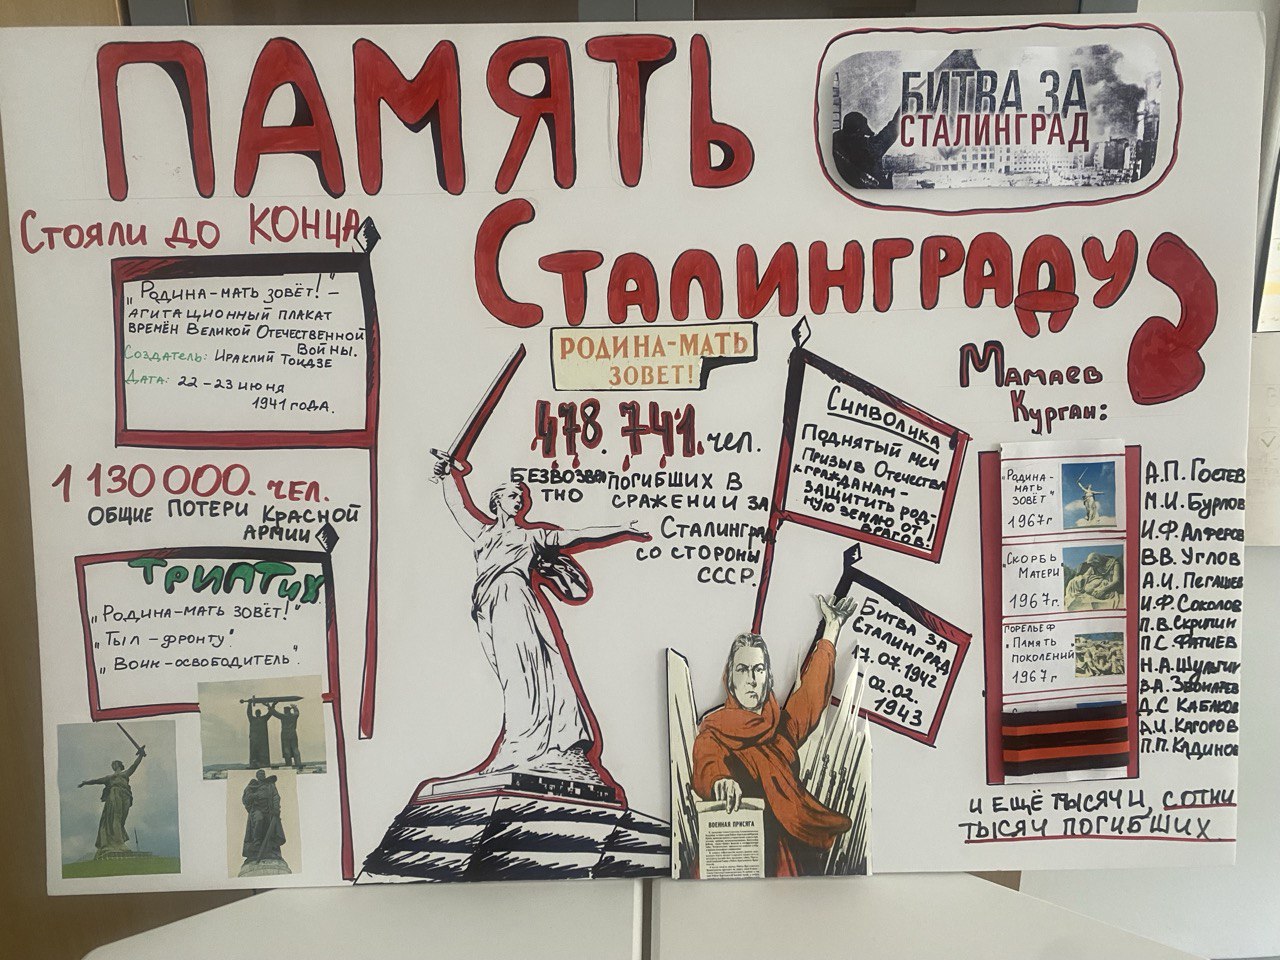 ПАМЯТЬ
СТАЛИНГРАДУ
БИТВА ЗА
СТАЛИНГРАД
Стояли до КОНЦА
„Родина-мать зовёт!" –
агитационный плакат
времён Великой Отечественной
Войны.
Создатель: Ираклий Тоидзе
Дата: 22-23 июня
1941 года.
1 130 000. чел.
общие потери Красной
Армии
Триптих
„Родина-мать зовёт!"
„Тыл-фронту".
„Воин-освободитель".
РОДИНА-МАТЬ
ЗОВЕТ!
478.741. чел.
БЕЗВОЗВРАТНО
ПОГИБШИХ В
СРАЖЕНИИ ЗА
Сталинград
со стороны
СССР.
Символика
Поднятый меч
Призыв Отечества
к гражданам –
защитить род-
ную землю от
врагов!
Битва за
Сталинград
17.07.1942
– 02.02.
1943
ВОЕННАЯ ПРИСЯГА
Мамаев
Курган:
„Родина-
мать
зовёт"
1967г
„Скорбь
Матери"
1967г.
Горельеф
„Память
поколений"
1967г
А.П. Гостев
М.И. Бурлов
И.Ф. Алферов
В.В. Углов
А.И. Пегашев
И.Ф. Соколов
П.В. Скрипин
П.С. Фатиев
Н.А. Шульгин
В.А. Звонарев
Д.С. Кабаков
А.И. Кагоров
П.П. Кадинов
и ещё тысячи, сотни
тысяч погибших